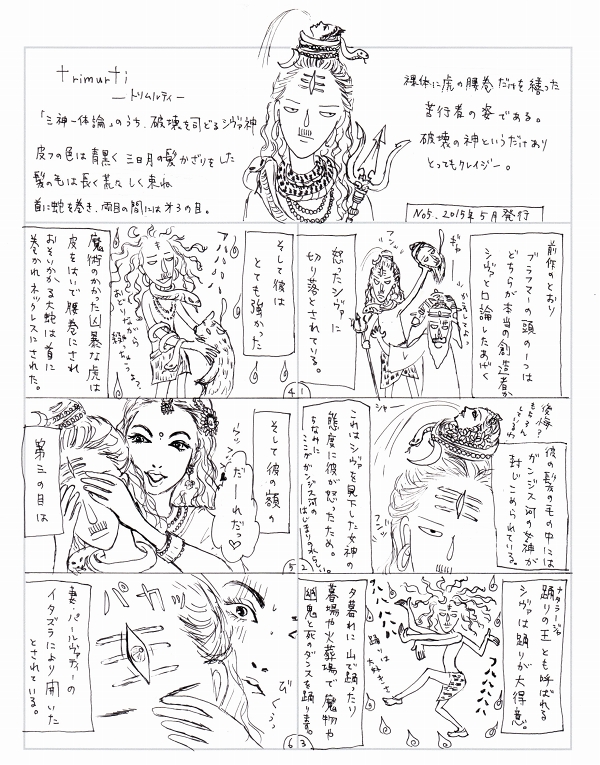 trimurti
―トリムルティ―
「三神一体論」のうち、破壊を司どるシヴァ神
皮フの色は青黒く 三日月の髪かざりをした
髪の毛は長く荒たしく束ね
首に蛇を巻き、両目の間には才3の目。
裸体に虎の腰巻だけを纏った
苦行者の姿である。
破壊の神というだけあり
とってもクレイジー。
No5. 2015年5月発行
前作のとおり
ブラフマーの頭の1つは
どちらが本当の創造者か
シヴァと口論したあげく
怒ったシヴァに
切り落とされている。
1
後悔?
もちろん
しているわ
彼の髪の毛の中には
ガンジス河の女神が
封じこめられている。
これはシヴァを見下した女神の
態度に彼が怒ったため。
ちなみに
ここがガンジス河の
はじまりのれらしい。
2
ナタラージャ
踊りの王とも呼ばれる
シヴァは踊りが大得意。
踊りは
大好きさ
夕暮れに山で踊ったり
墓場や火葬場で魔物や
幽鬼と死のダンスを踊ります。
3
そして彼は
とても強かった
おどりながら
魔術のかかった凶暴な虎は
皮をはいで腰巻にされ
おそいかかる大蛇は首に
巻かれネックレスにされた。
4
そして彼の額の
だーれだっ♡
第三の目は
5
パカッ
びくぅっ
妻・パールヴァティーの
イタズラにより開いた
とされている。
6